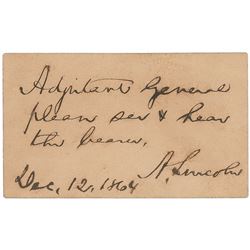 Adjutant General
please see & hear
the bearer.
A. Lincoln
Dec. 12, 1864